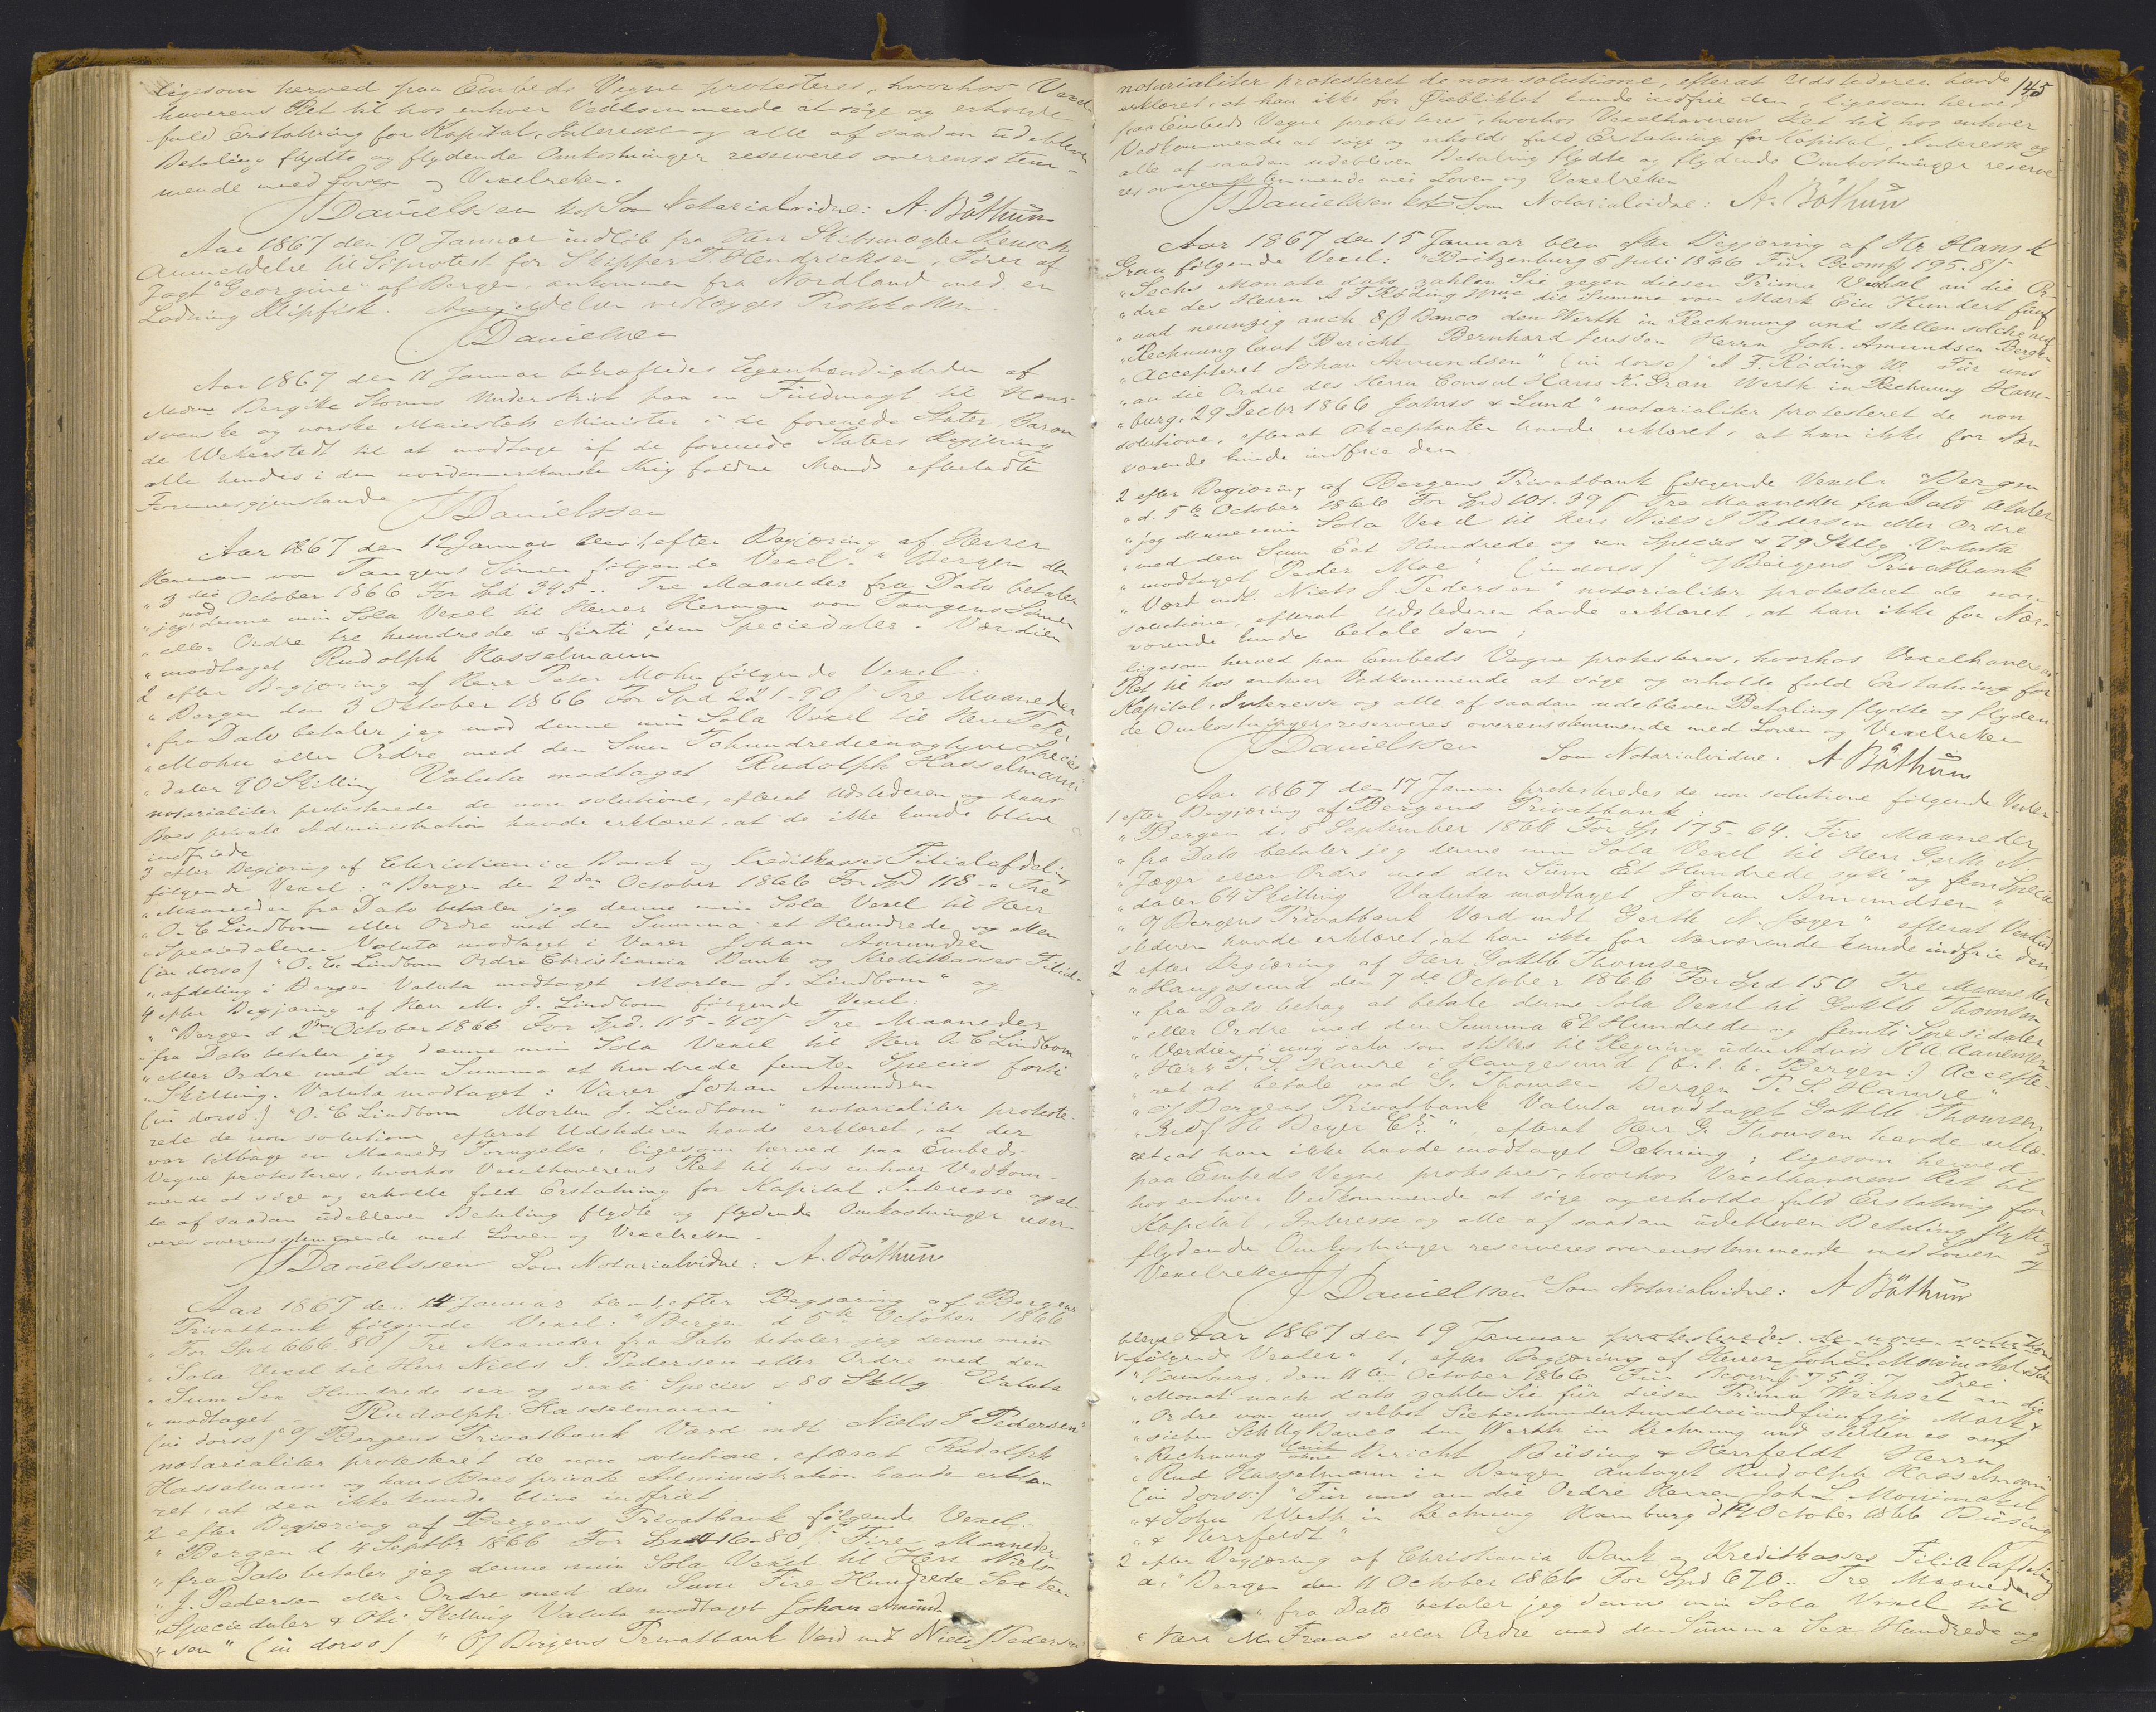 ligesom herved paa Embeds Vegne protesteres, hvorhos Vexel-
haverens Ret til hos enhver Vedkommende at söge og erholde
fuld Erstatning for Kapital, Interesse og alle af saadan udebleven
Betaling flydte og flydende Omkostninger reserveres overensstem-
mende med Loven og Vexelretten.
J Danielssen kst Som Notarialvidne: A. Böthun
Aar 1867 den 10 Januar indløb fra Herr Skibsmægler Rensch
Anmeldelse til Söprotest for Skipper T. Hendricksen, Fører af
Jagt "Georgine" af Bergen, ankommen fra Nordland med en
Ladning Klipfisk. Anmeldelsen vedlægges Protokollen.
J Danielssen
Aar 1867 den 11 Januar bekræftedes Egenhændigheden af
Mdme Bergitte Storms Underskrift paa en Fuldmagt til Hans
svenske og norske Majestæts Minister i de forenede Stater, Baron
de Wetterstedt til at modtage af de forenede Staters Regjering
alle hendes i den nordamerikanske Krig faldne Mands efterladte
Formuesgjenstande
J Danielssen
Aar 1867 den 12 Januar blev 1, efter Begjæring af Herrer
Herman von Tangens Sönner følgende Vexel: "Bergen den
"3 die October 1866 For Spd 345 .. Tre Maaneder fra Dato betaler
"jeg mod denne min Sola Vexel til Herrer Herman von Tangens Sönner
"eller Ordre tre hundrede & firti fem Speciedaler. Værdien
"modtaget Rudolph Hasselmann
2 efter Begjæring af Herr Peter Mohn følgende Vexel:
"Bergen den 3 Oktober 1866 For Spd 221-90 s Tre Maaneder
"fra Dato betaler jeg mod denne min Sola Vexel til Herr Peter
"Mohn eller Ordre med den Sum Tohundredeenogtyve Specie
"daler 90 Skilling Valuta modtaget Rudolph Hasselmann"
notarialiter protesterede de non solutione, efterat Udstederen og hans
Boes private Administration havde erklæret, at de ikke kunde blive
indfriede
3 efter Begjæring af Christiania Bank og Kreditkasses Filialafdeling
følgende Vexel: "Bergen den 2den October 1866 For Spd 118 - " Tre
"Maaneder fra Dato betaler jeg denne min Sola Vexel til Herr
"O. C Lindbom eller Ordre med den Summa et Hundrede og atten
"Speciedaler. Valuta modtaget i Varer Johan Amundsen
(in dorso) "O. C. Lindbom Ordre Christiania Bank og Kreditkasses Filial-
"afdeling i Bergen Valuta modtaget Morten J. Lindbom" og
4 efter Begjæring af Herr M. J. Lindbom følgende Vexel:
"Bergen d 2den October 1866 For Spd. 115-40 s Tre Maaneder
"fra Dato betaler jeg denne min Sola Vexel til Herr O. C Lindbom
"eller Ordre med den Summa et hundrede femten Species forti
"Skilling. Valuta modtaget i Varer Johan Amundsen
(in dorso) "O. C Lindbom Morten J. Lindbom" notarialiter proteste-
rede de non solutione, efterat Udstederen havde erklæret, at der
var tilbage en Maaneds Fornyelse, ligesom herved paa Embeds-
Vegne protesteres, hvorhos Vexelhaverens Ret til hos enhver Vedkom-
mende at söge og erholde fuld Erstatning for Kapital, Interesse og al-
le af saadan udebleven Betaling flydte og flydende Omkostninger reser-
veres overensstemmende med Loven og Vexelretten.
J Danielssen Som Notarialvidne: A. Böthun
Aar 1867 den 14 Januar blev 1, efter Begjæring af Bergens
Privatbank følgende Vexel: "Bergen d 5te October 1866
"For Spd 666.80 s Tre Maaneder fra Dato betaler jeg denne min
"Sola Vexel til Herr Niels J. Pedersen eller Ordre med den
"Sum Sex Hundrede sex og sexti Species & 80 Skllg. Valuta
"modtaget. Rudolph Hasselmann
(in dorso) "Of Bergens Privatbank Værd mdt Niels J Pedersen"
notarialiter protesteret de non solutione, efterat Rudolph
Hasselmann og hans Boes private Administration havde erklæ-
ret, at den ikke kunde blive indfriet
2 efter Begjæring af Bergens Privatbank følgende Vexel:
"Bergen d. 4 Septbr 1866 For Spd 416-80 s. Fire Maaneder
"fra Dato betaler jeg denne min Sola Vexel til Herr Niels
"J. Pedersen eller Ordre med den Sum Fire Hundrede Sexten
"Speciedaler & Otti Skilling Valuta modtaget Johan Amund-
"sen" (in dorso) "Of Bergens Privatbank Værd mdt Niels J Pedersen"
145
notarialiter protesteret de non solutione, efterat Udstederen havde
erklæret, at han ikke for Øieblikket kunde indfrie den, ligesom herved
paa Embeds Vegne protesteres, hvorhos Vexelhaverens Ret til hos enhver
Vedkommende at söge og erholde fuld Erstatning for Kapital, Interesse og
alle af saadan udebleven Betaling flydte og flydende Omkostninger reserve-
res overensstemmende med Loven og Vexelretten
J Danielssen kst Som Notarialvidne: A. Böthun
Aar 1867 den 15 Januar blev efter Begjæring af Hr Hans K
Gran følgende Vexel: "Boitzenburg 5 Juli 1866 Für Bcomk 195.8 s
"Sechs Monate dato zahlen Sie gegen diesen Prima Wechsel an die Or-
"dre des Herrn A F Röding Wwe die Summe von Mark Ein Hundert fünf
"und neunzig auch 8 ß Banco den Werth in Rechnung und stellen solche auf
"Rechnung laut Bericht Bernhard Jenssen Herrn Joh. Amundsen Bergen
"Accepteret Johan Amundsen" (in dorso) "A F. Röding W. Für uns
"an die Ordre des Herrn Consul Hans K. Gran Werth in Rechnung Ham-
"burg, 29 Decbr 1866 Johnss & Lund" notarialiter protesteret de non
solutione, efterat Akceptanten havde erklæret, at han ikke for Nær-
værende kunde indfrie den.
2 efter Begjæring af Bergens Privatbank følgende Vexel: "Bergen
"d. 5te October 1866 For Spd 101.29 s Tre Maaneder fra Dato betaler
"jeg denne min Sola Vexel til Herr Niels J Pedersen eller Ordre
"med den Sum Eet Hundrede og en Species & 29 Skllg. Valuta
"modtaget Peder Moe" (in dorso) "Of Bergens Privatbank
"Værd mdt. Niels J. Pedersen" notarialiter protesteret de non
solutione, efterat Udstederen havde erklæret, at han ikke for Nær-
værende kunde betale den;
ligesom herved paa Embeds Vegne protesteres, hvorhos Vexelhaverens
Ret til hos enhver Vedkommende at söge og erholde fuld Erstatning for
Kapital, Interesse og alle af saadan udebleven Betaling flydte og flyden-
de Omkostninger, reserveres overensstemmende med Loven og Vexelretten
J Danielssen Som Notarialvidne. A Böthun
Aar 1867 den 17 Januar protesteredes de non solutione følgende Vexler
1 efter Begjæring af Bergens Privatbank:
"Bergen d. 8 September 1866 For Sp 175-64. Fire Maaneder
"fra Dato betaler jeg denne min Sola Vexel til Herr Gerth N.
"Jæger eller Ordre med den Sum Et Hundrede sytti og fem Specie
"daler 64 Skilling Valuta modtaget Johan Amundsen"
"Of Bergens Privatbank Værd mdt Gerth N. Jæger" efterat Vexeludstederen havde erklæret, at han ikke for Nærværende kunde indfrie den
2 efter Begjæring af Herr Gottlb Thomsen
"Haugesund den 7de October 1866 For Spd 150 Tre Maaneder
"fra Dato behag at betale denne Sola Vexel til Gottlb Thomsen
"eller Ordre med den Summa Et Hundrede og femti Spesidaler
"Værdien i mig selv som stilles til Regning uden Advis K A. Aanensen
"Herr T. S. Hamre i Haugesund (b. t. b. Bergen:) Accepte-
"ret at betale ved G. Thomsen Bergen T. S. Hamre"
"Of Bergens Privatbank Valuta modtaget Gottlb Thomsen
efterat Herr G. Thomsen havde erklæ-
ret, at han ikke havde modtaget Dækning; ligesom herved
paa Embeds Vegne protesteres, hvorhos Vexelhaverens Ret til
hos enhver Vedkommende at söge og erholde fuld Erstatning for
Kapital, Interesse og alle af saadan udebleven Betaling flydte og
flydende Omkostninger reserveres overensstemmende med Loven og
Vexelretten J Danielssen Som Notarialvidne: A Böthun
Aar 1867 den 19 Januar protesteredes de non solutione
følgende Vexler 1, efter Begjæring af Herrer Joh L. Mowinckel & Sön
"Hamburg, den 11ten October 1866 Für Bcomk 753.7 Drei
"Monat nach dato zahlen Sie für diesen Prima Wechsel an die
"Ordre von uns selbst Siebenhundertunddreiundfünfzig Mark &
"sieben Schllg Banco den Werth in Rechnung und stellen es auf
"Rechnung laut ohne Bericht Büsing & Herrfeldt Herrn
"Rud Hasselmann in Bergen antaget Rudolph Hasselmann"
(in dorso:) "Für uns an die Ordre Herren Joh L Mowinckel
"& Sohn Werth in Rechnung Hamburg d 11 October 1866 Büsing
"& Herrfeldt"
2 efter Begjæring af Christiania Bank og Kreditkasses Filialafdeling
a. "Bergen den 11 October 1866 For Spd 670 .. Tre Maaneder
"fra Dato betaler jeg denne min Sola Vexel til
"Herr M. Fraas eller Ordre med den Summa Sex Hundrede og